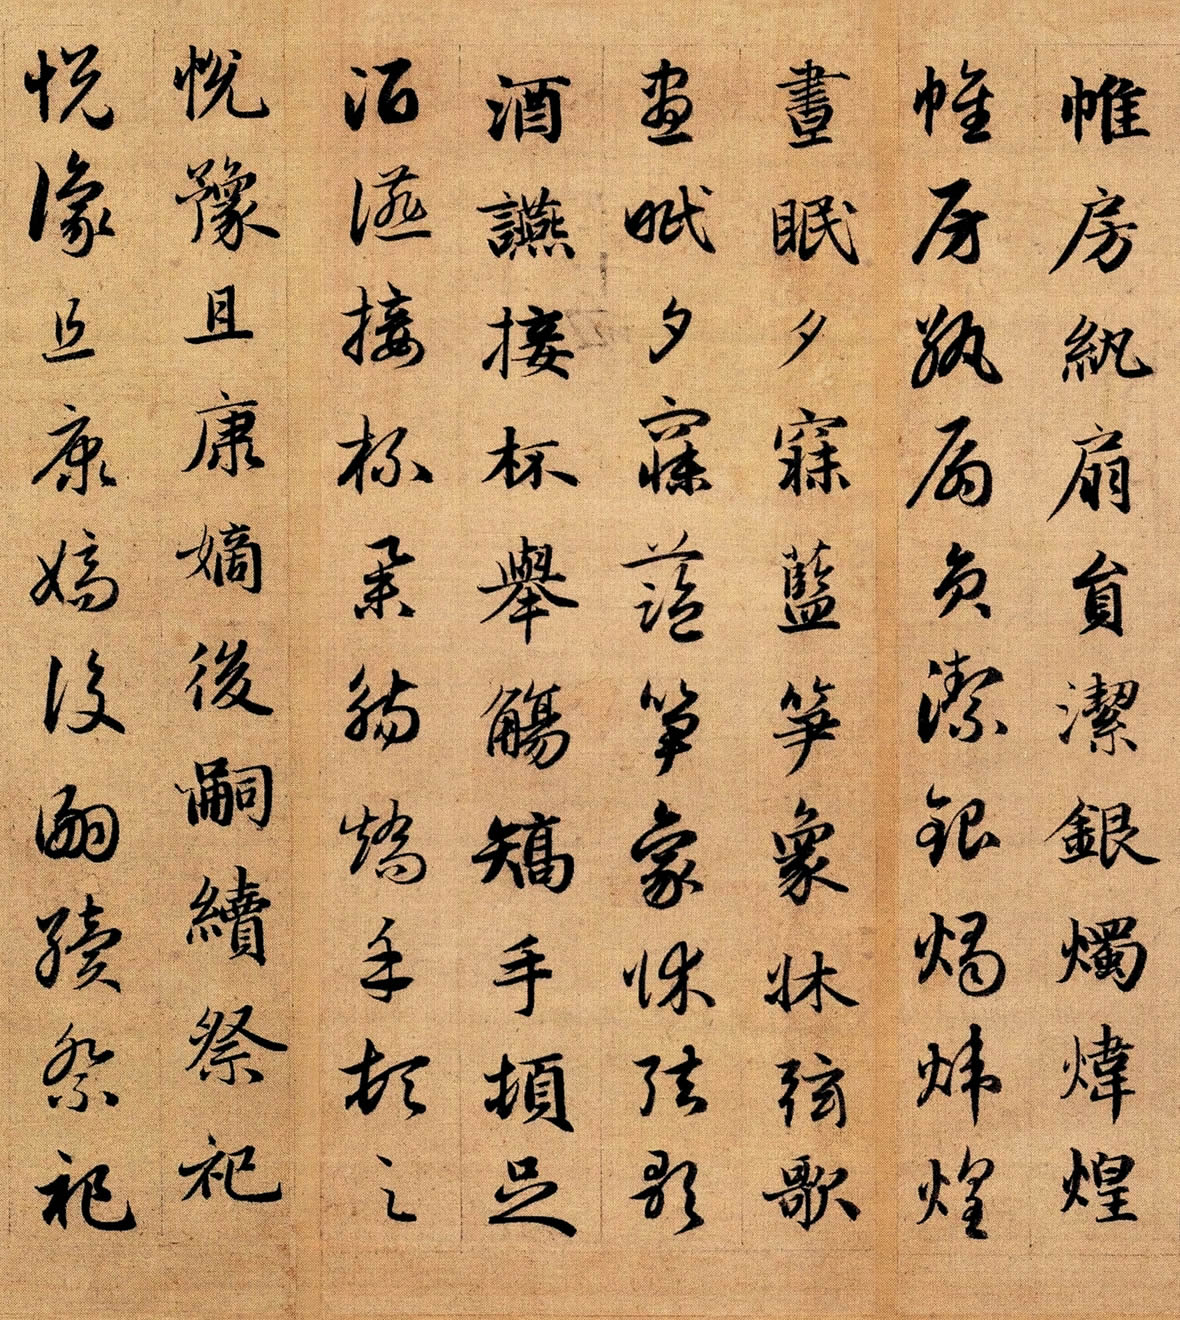 帷房紈扇員潔銀燭煒煌
帷房紈扇員潔銀燭煒煌
晝眠夕寐藍笋象牀弦歌
晝眠夕寐藍笋象牀弦歌
酒讌接杯舉觴矯手頓足
酒讌接杯舉觴矯手頓足
悅豫且康嫡後嗣續祭祀
悅豫且康嫡後嗣續祭祀